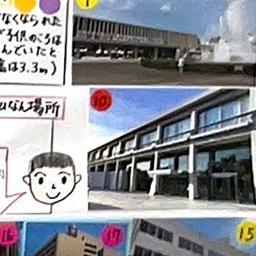 なくなられた
子供のころは
んでいたと
は3.3m)
なん場所
10
16
17
15